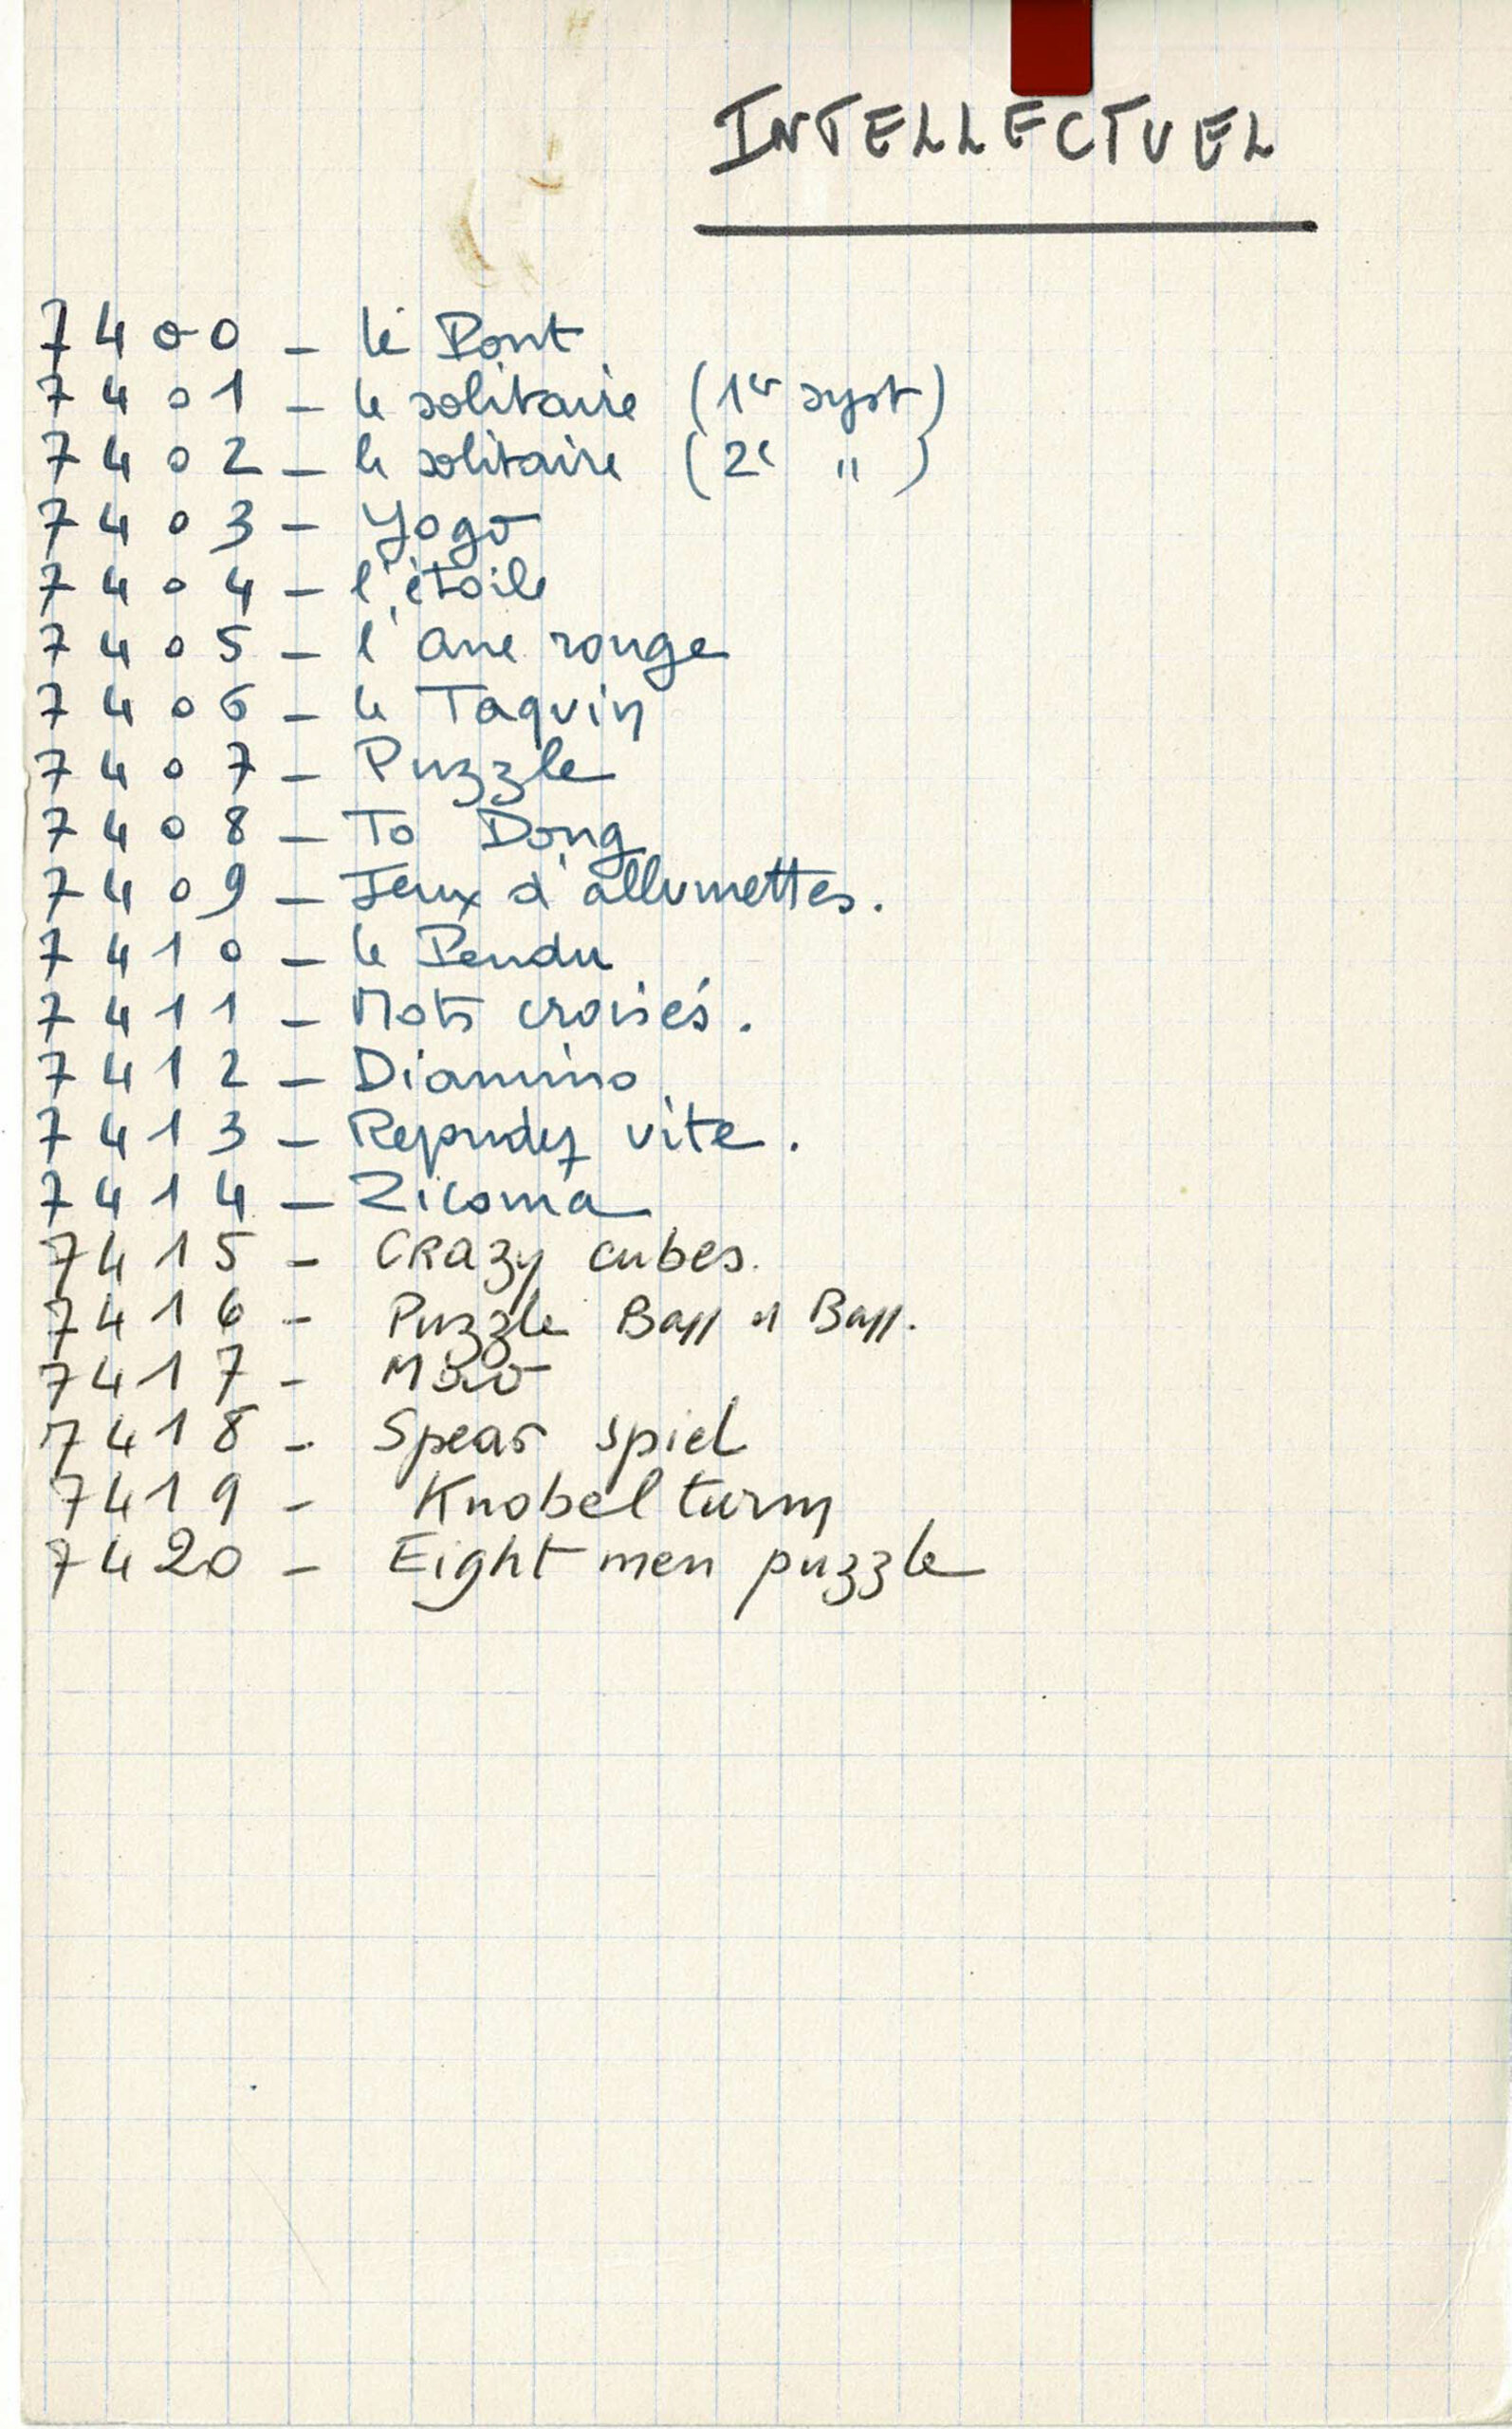 INTELLECTUEL
7400 - le Pont
7401 - le solitaire (1er syst)
7402 - le solitaire (2e ")
7403 - Yogo
7404 - l'étoile
7405 - l'ane rouge
7406 - le Taquin
7407 - Puzzle
7408 - To Dong
7409 - Jeux d'allumettes.
7410 - le Pendu
7411 - Mots croisés.
7412 - Diamino
7413 - Repondez vite.
7414 - Zicoma
7415 - CRazy cubes.
7416 - Puzzle
7417 -
7418 - Spear spiel
7419 - Knobel turm
7420 - Eight men puzzle